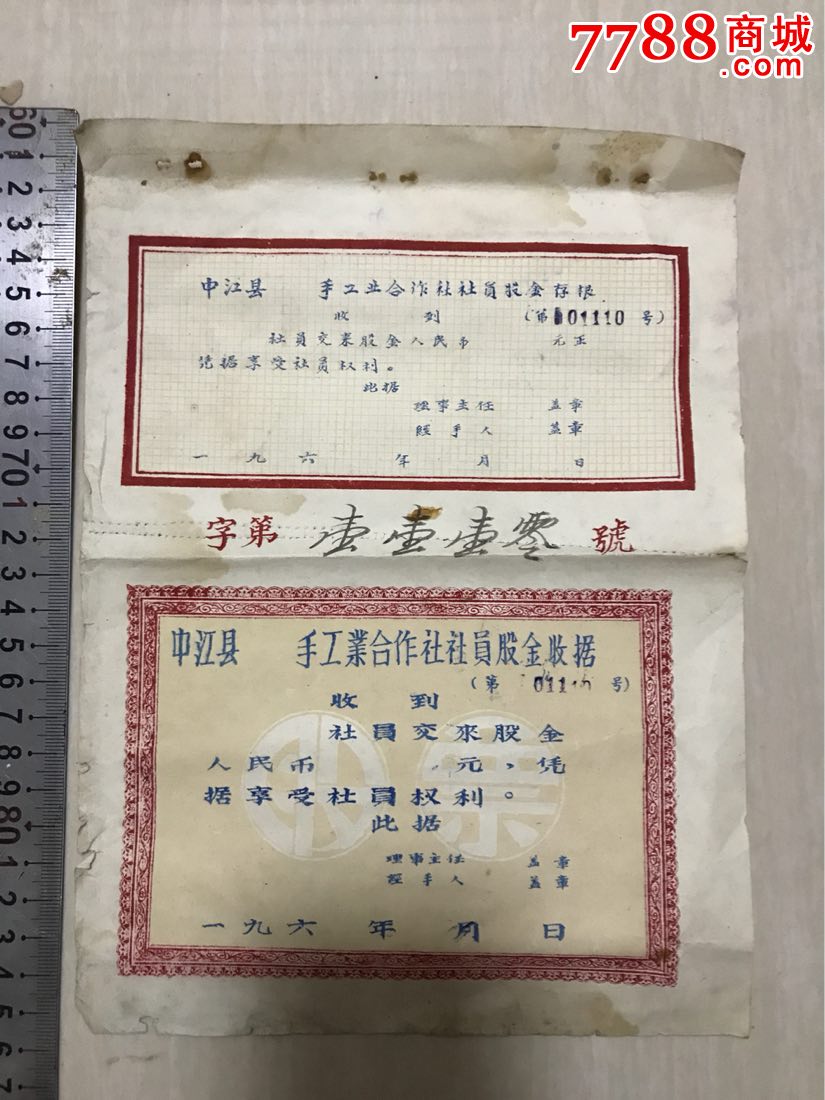 7788商城
.com
中江县 手工业合作社社员股金存根
收 到 (第 01110 号)
社员交来股金人民币 元正
凭据享受社员权利。
此据
理事主任 盖章
經手人 盖章
一九六 年 月 日
字第 壹壹壹零 號
中江县 手工業合作社社員股金收据
(第 011 号)
收 到
社員交來股金
人民币 元,凭
据享受社員权利。
此据
股票
理事主任 盖章
經手人 盖章
一九六 年 月 日
60
1
2
3
4
5
6
7
8
9
70
1
2
3
4
5
6
7
8
9
80
1
2
3
4
5
6
7